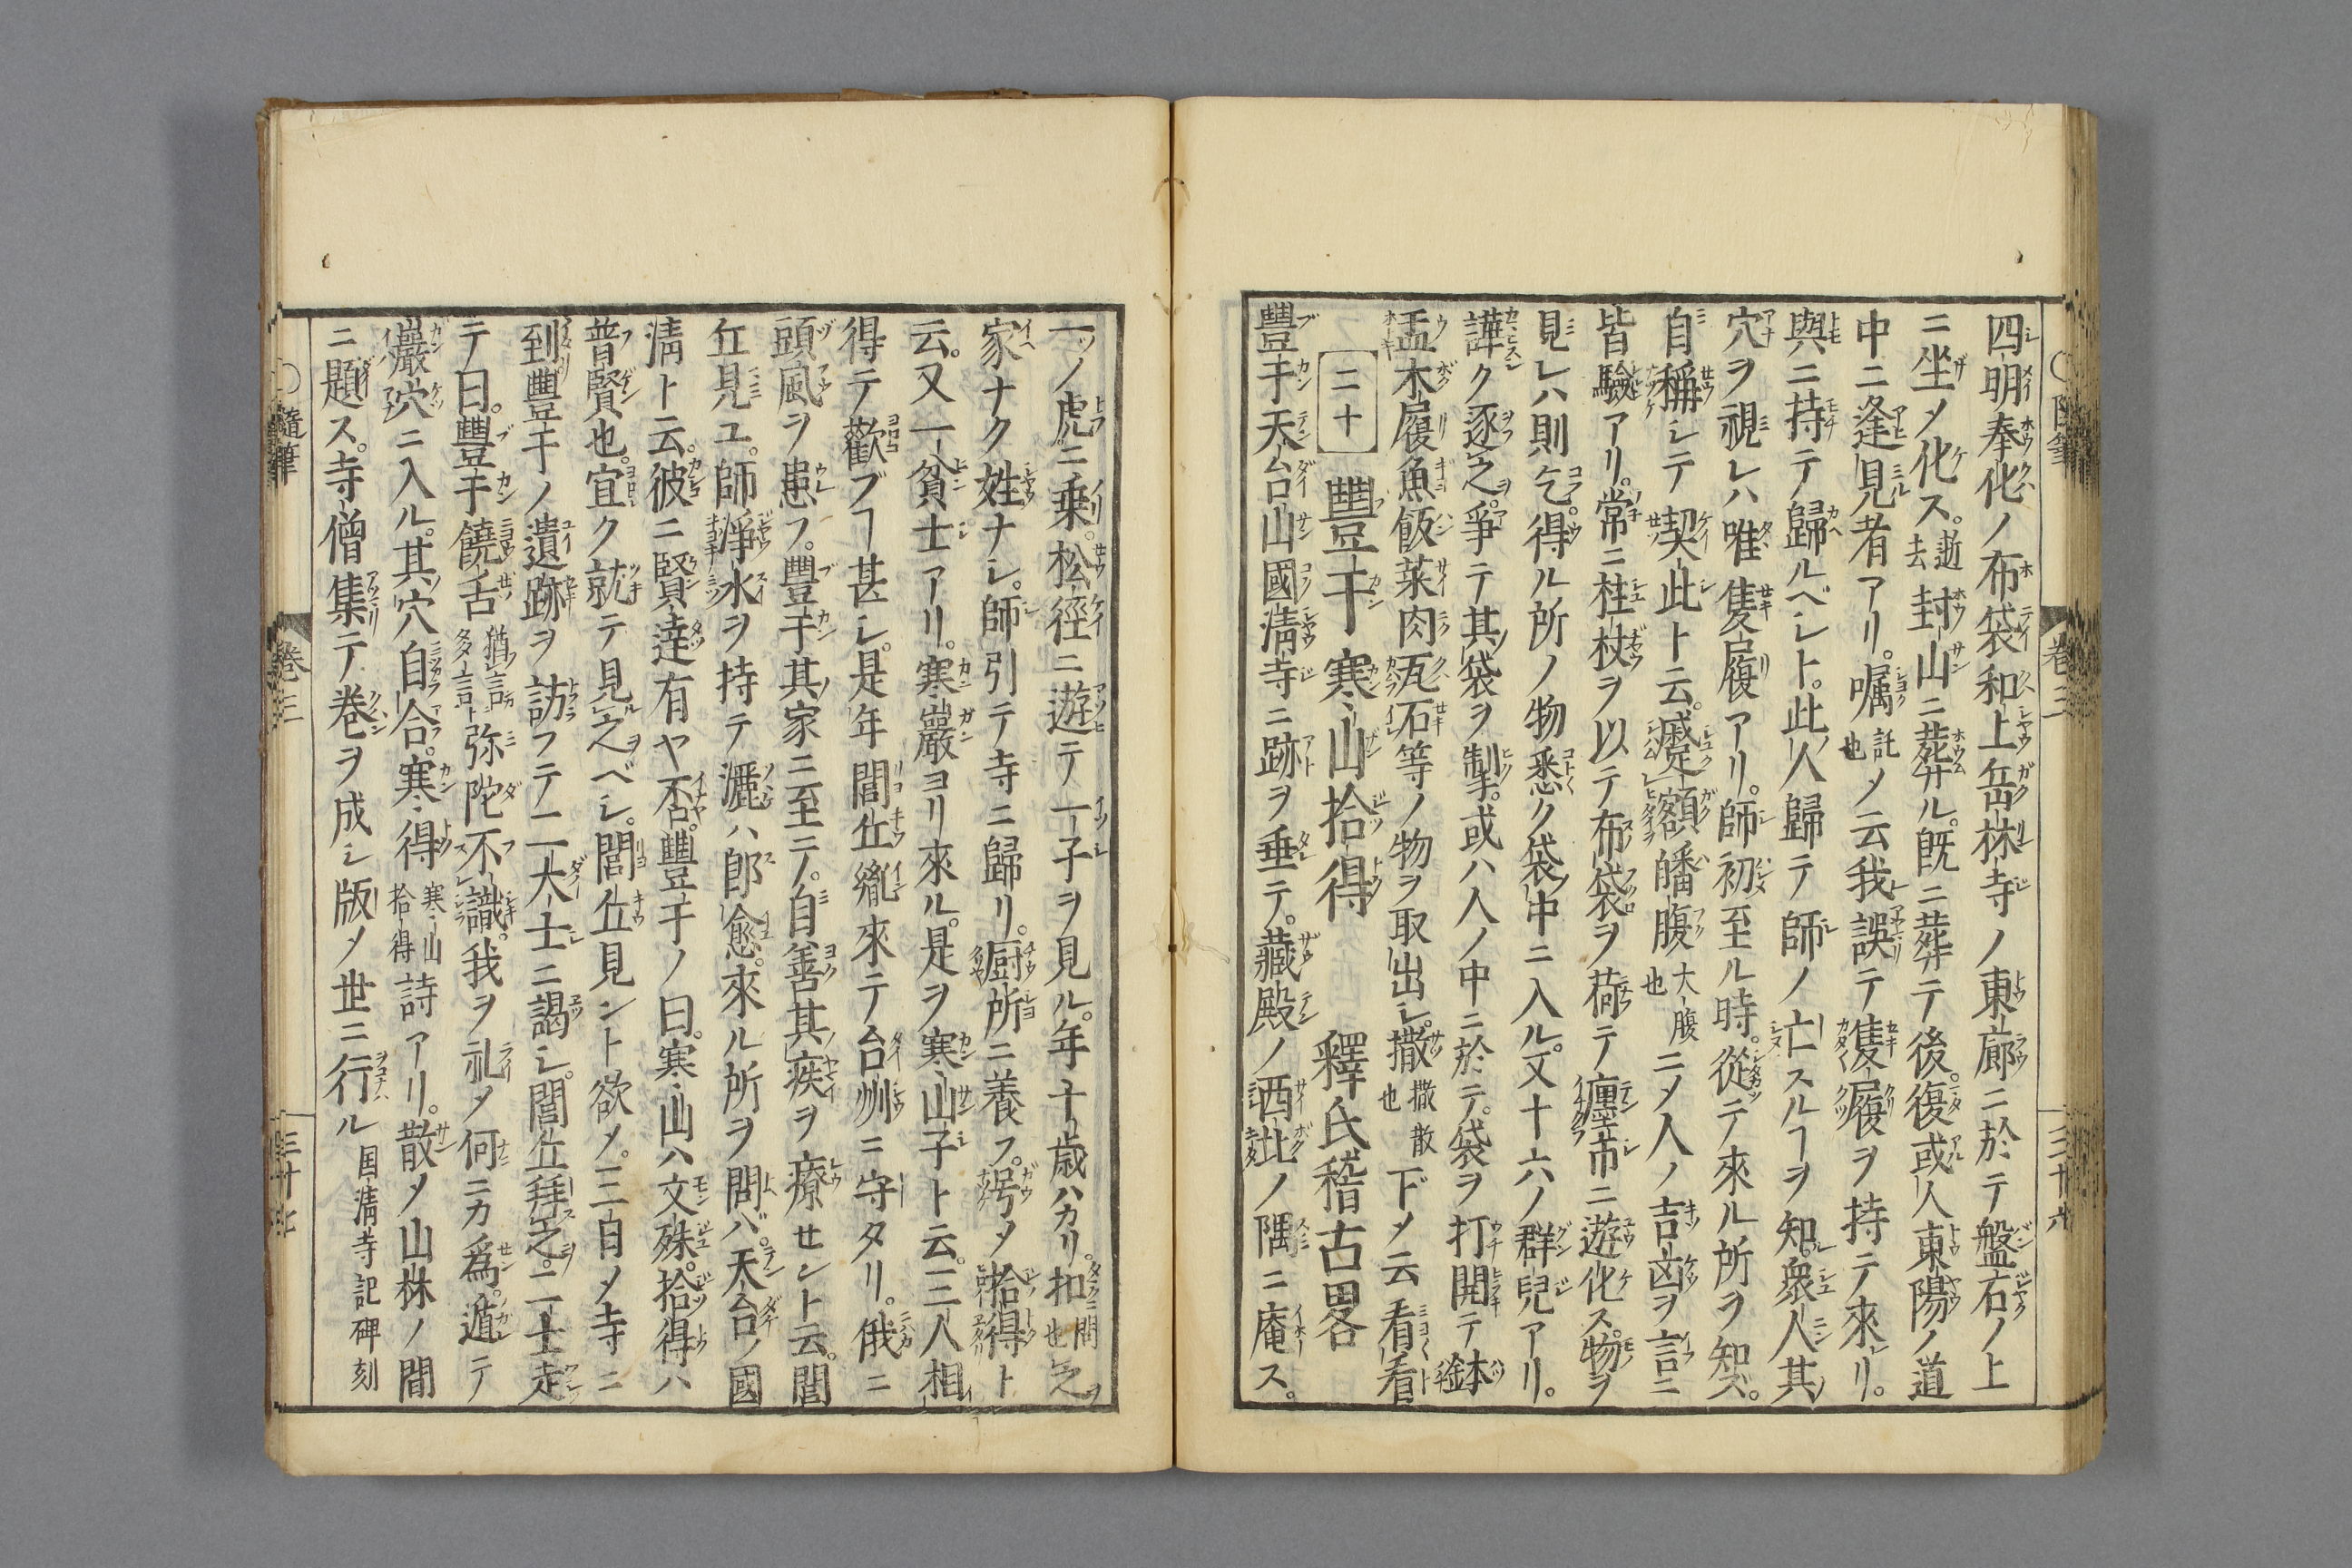 四明奉化ノ布袋和上岳林寺ノ東廊ニ於テ盤石ノ上
ニ坐メ化ス。逝去封山ニ葬ル。既ニ葬テ後。復或人東陽ノ道
中ニ逢見者アリ。嘱託也メ云我誤テ隻履ヲ持テ來リ。
與ニ持テ歸ルベシト。此人歸テ師ノ亡スルヿヲ知。衆人其
穴ヲ視レハ唯隻履アリ。師初至ル時。從テ來ル所ヲ知ズ。
自稱シテ契此ト云。蹙額皤腹大腹也ニメ人ノ吉凶ヲ言ニ
皆驗アリ。常ニ柱杖ヲ以テ布袋ヲ荷テ廛市ニ遊化ス。物ヲ
見レハ則乞。得ル所ノ物悉ク袋中ニ入ル。又十六ノ群兒アリ。
譁ク逐之。爭テ其袋ヲ掣。或ハ人ノ中ニ於テ。袋ヲ打開テ鉢
盂木履魚飯菜肉瓦石等ノ物ヲ取出シ。撒撒散也下メ云看看
二十 豐干寒山拾得 釋氏稽古畧
豐干天台山國清寺ニ跡ヲ垂テ。藏殿ノ西北ノ隅ニ庵ス。
一ツノ虎ニ乗。松徑ニ遊テ一子ヲ見ル。年十歳ハカリ。扣問也之
家ナク姓ナシ。師引テ寺ニ歸リ。厨所ニ養フ。号メ拾得ト
云。又一貧士アリ。寒巖ヨリ來ル。是ヲ寒山子ト云。三人相
得テ歡ブヿ甚シ。是年閭丘胤來テ台州ニ守タリ。俄ニ
頭風ヲ患フ。豐干其家ニ至ニ。自善其疾ヲ療セント云。閭
丘見ユ。師淨水ヲ持テ灑ハ即愈。來ル所ヲ問バ。天台ノ國
清ト云。彼ニ賢達有ヤ否。豐干ノ曰。寒山ハ文殊。拾得ハ
普賢也。宜ク就テ見之ベシ。閭丘見ント欲メ。三日メ寺ニ
到豐干ノ遺跡ヲ訪フテ二大士ニ謁シ。閭丘拜之。二士走
テ曰。豐干饒舌猶言多言弥陀不識。我ヲ礼メ何ニカ爲。遁テ
巖穴ニ入ル。其穴自合。寒得寒山拾得詩アリ。散メ山林ノ間
ニ題ス。寺僧集テ巻ヲ成シ版メ世ニ行ル国清寺記碑刻
隨筆 巻三